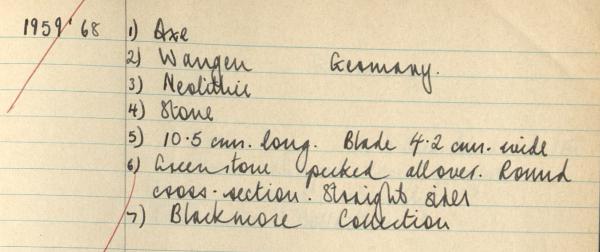 1959'68 1) Axe
2) Wangen Germany.
3) Neolithic
4) Stone
5) 10.5 cms. long. Blade 4.2 cms. wide
6) Greenstone pecked allover. Round
cross-section. Straight sides
7) Blackmore Collection